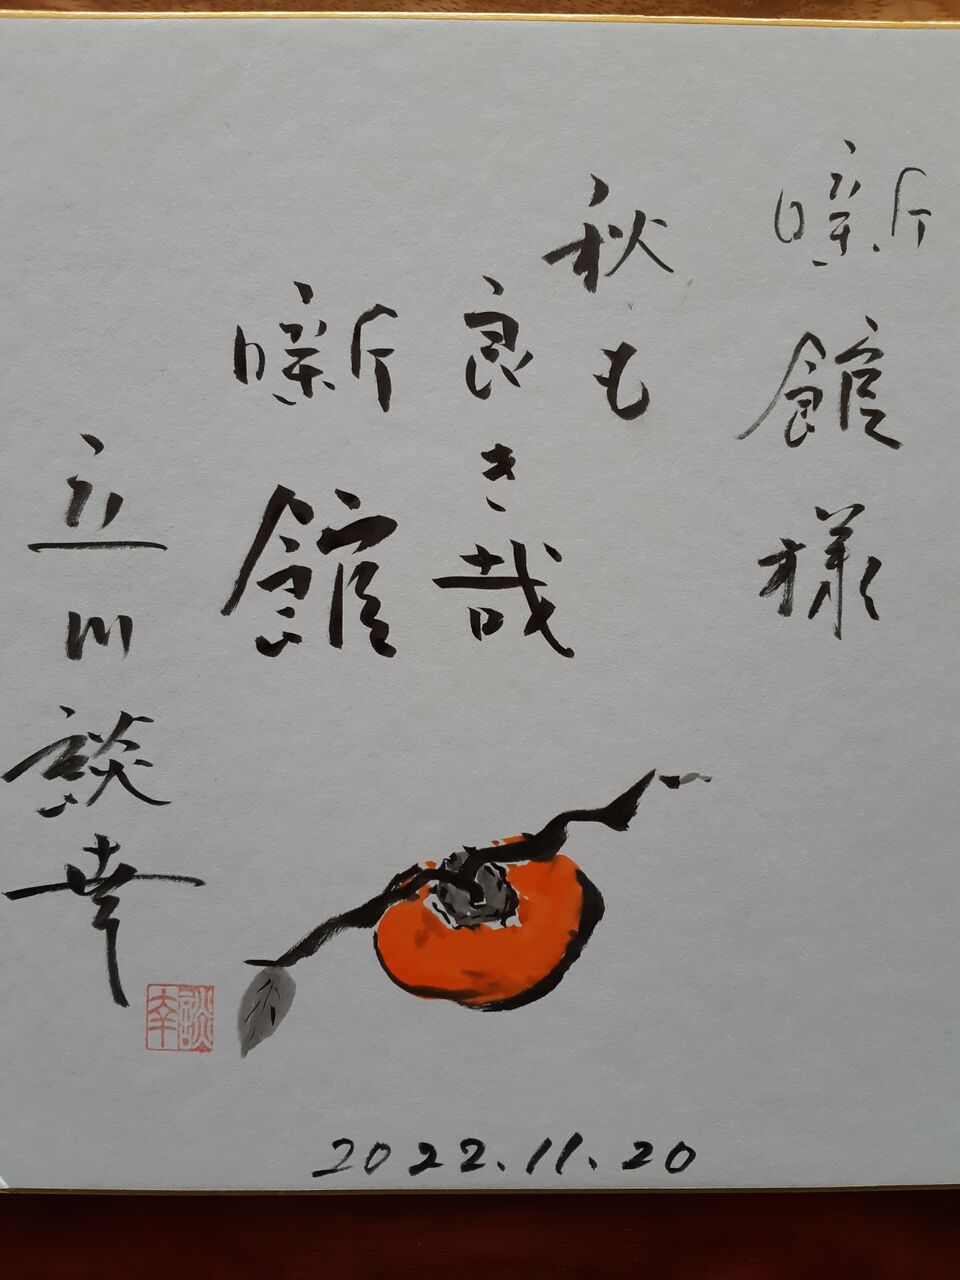 噺館様
秋も
良き哉
噺館
立川談幸
談幸
2022.11.20